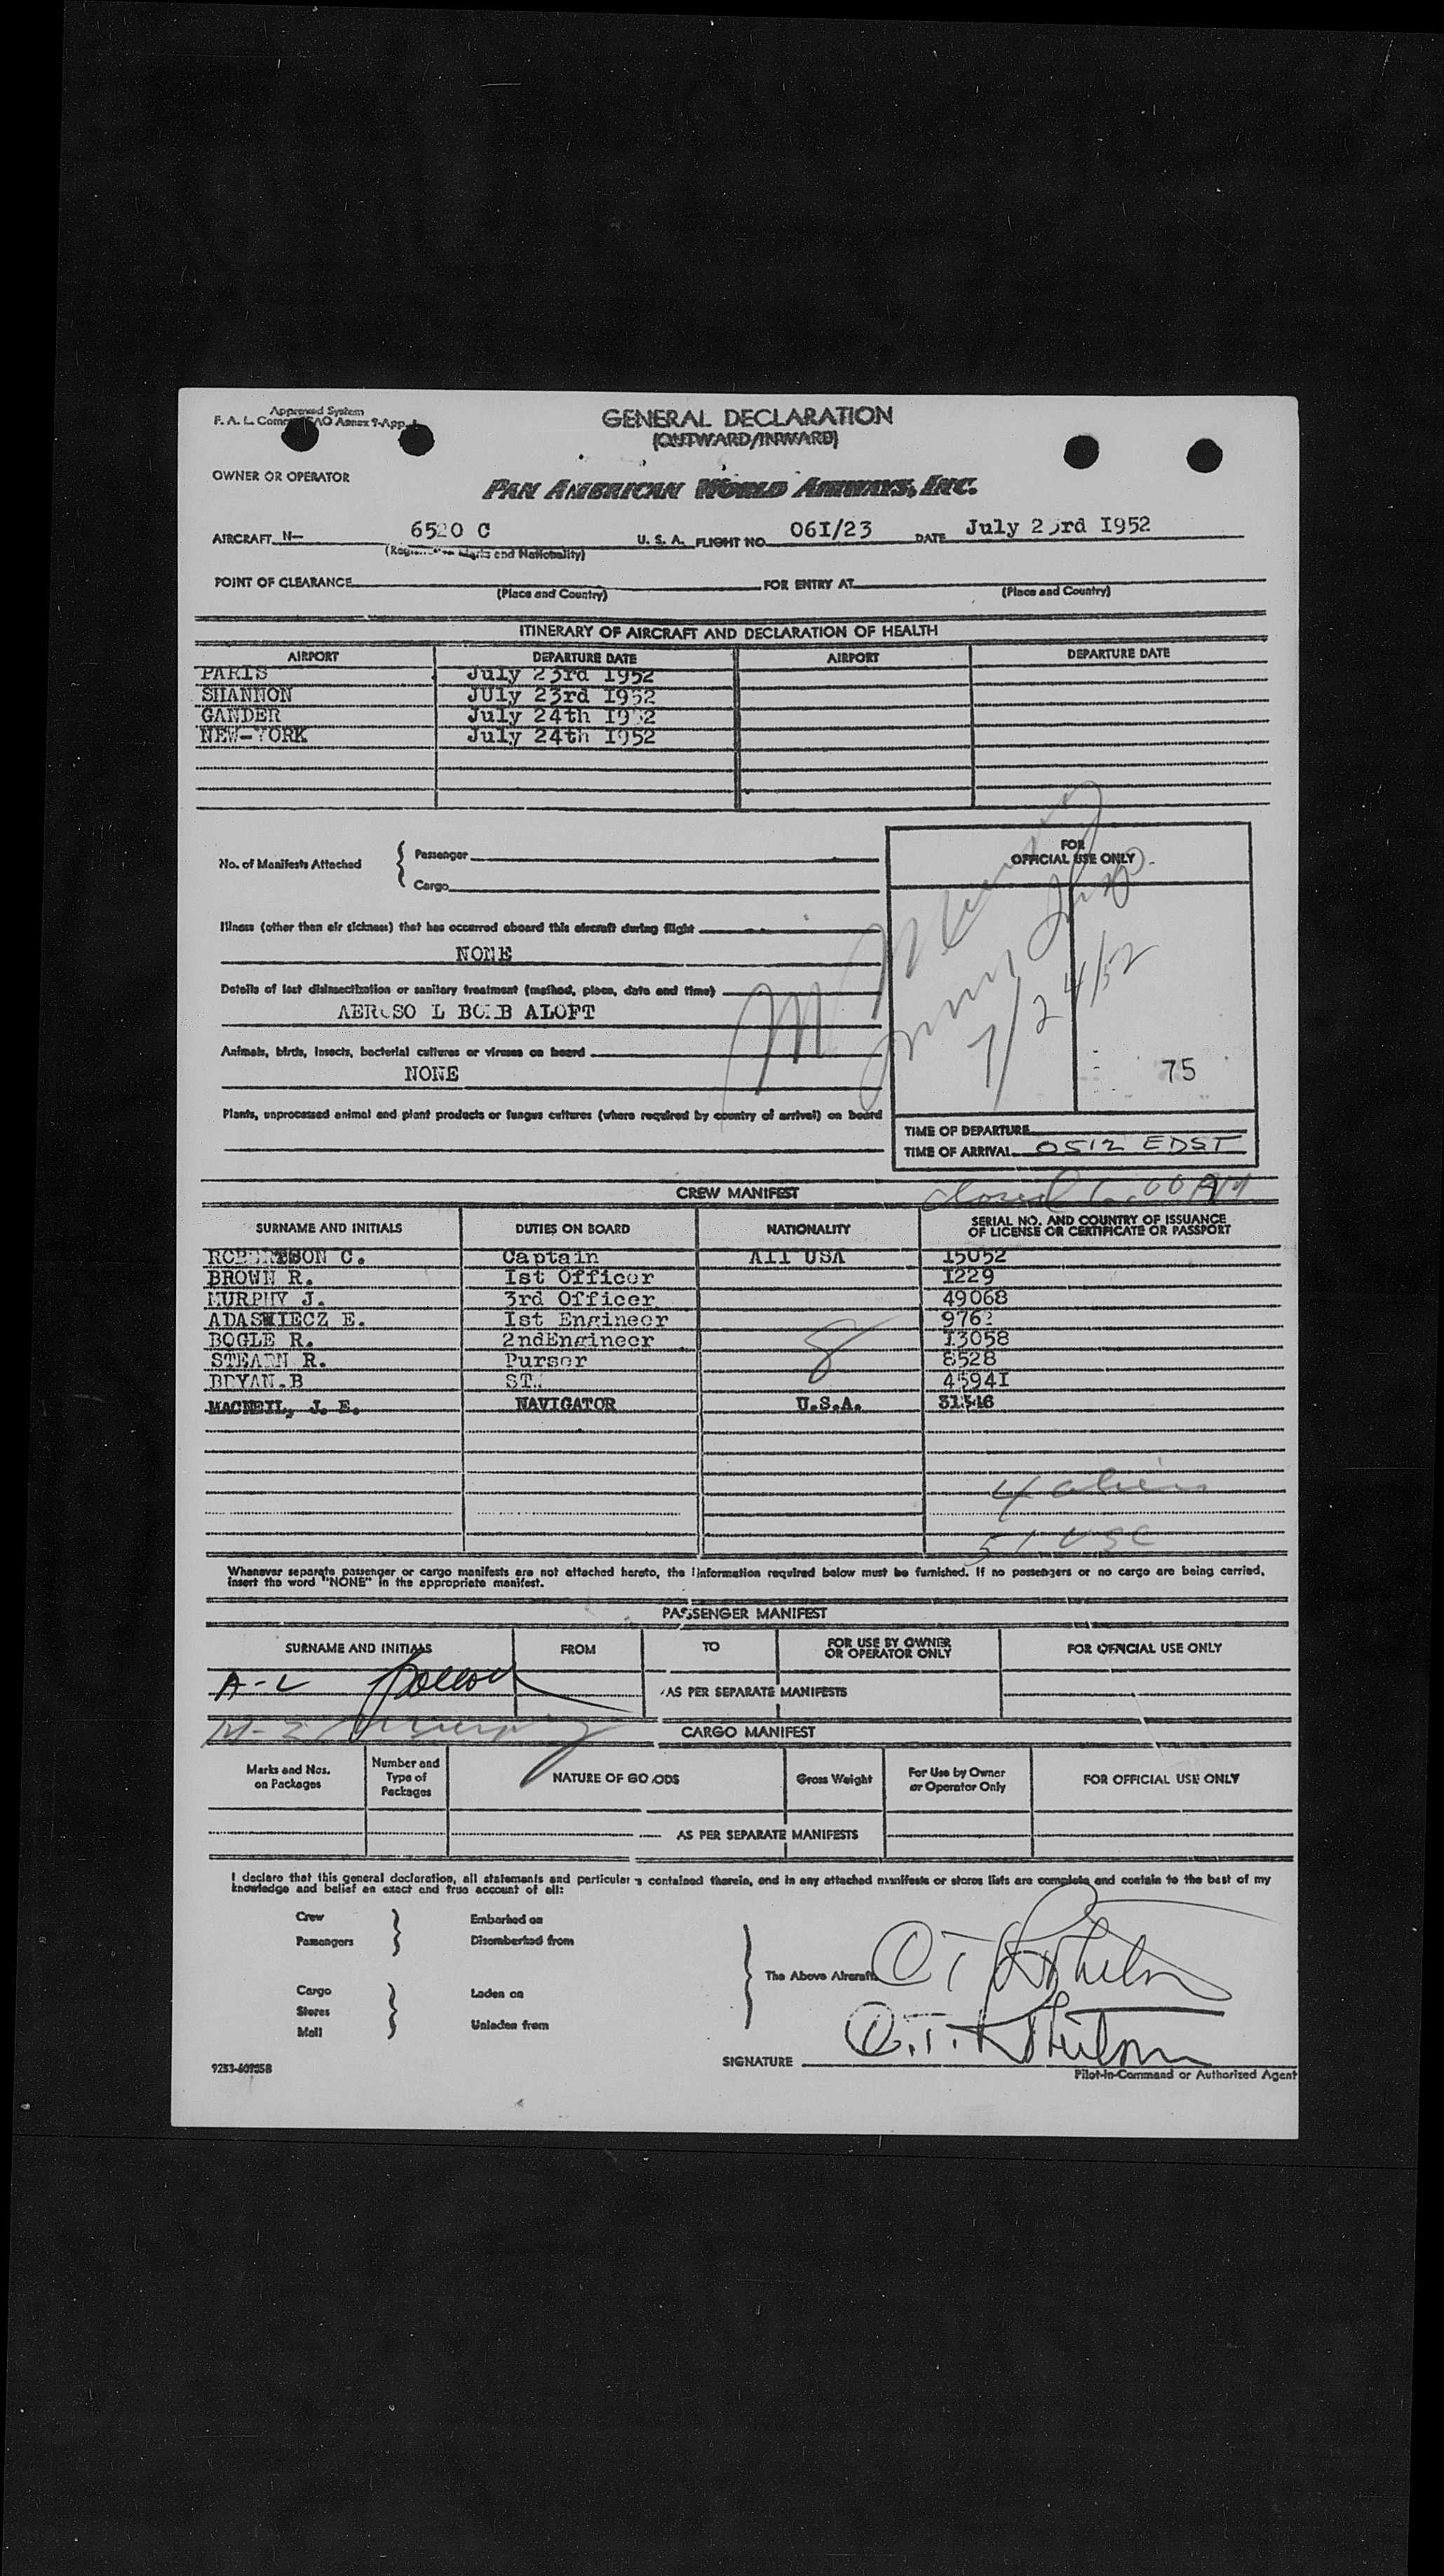 Approved System
F. A. L. Annex 9-App.
GENERAL DECLARATION
(OUTWARD/INWARD)
OWNER OR OPERATOR
PAN AMERICAN WORLD AIRWAYS, INC.
AIRCRAFT N- 6520 C U. S. A. FLIGHT NO. 06I/23 DATE July 23rd I952
(Registration Marks and Nationality)
POINT OF CLEARANCE FOR ENTRY AT
(Place and Country) (Place and Country)
ITINERARY OF AIRCRAFT AND DECLARATION OF HEALTH
AIRPORT DEPARTURE DATE AIRPORT DEPARTURE DATE
PARIS July 23rd I952
SHANNON JUly 23rd I952
GANDER July 24th I952
NEW-YORK July 24th I952
FOR
OFFICIAL USE ONLY
No. of Manifests Attached { Passenger
Cargo
Illness (other than air sickness) that has occurred aboard this aircraft during flight
NONE
Details of last disinsectization or sanitary treatment (method, place, date and time)
AEROSO L BOMB ALOFT
7/24/52
Animals, birds, insects, bacterial cultures or viruses on board
NONE
75
Plants, unprocessed animal and plant products or fungus cultures (where required by country of arrival) on board
TIME OF DEPARTURE
TIME OF ARRIVAL 0512 EDST
closed 6:00 AM
CREW MANIFEST
SURNAME AND INITIALS DUTIES ON BOARD NATIONALITY SERIAL NO. AND COUNTRY OF ISSUANCE
OF LICENSE OR CERTIFICATE OR PASSPORT
ROBERTSON C. Captain All USA I5052
BROWN R. Ist Officer I229
MURPHY J. 3rd Officer 49068
ADASKIECZ E. Ist Engineer 9762
BOGLE R. 2ndEngineer I3058
STEARN R. Purser 8528
BRYAN.B ST. 4594I
8
MACNEIL, J. E. NAVIGATOR U.S.A. 31546
4 aliens
51 USC
Whenever separate passenger or cargo manifests are not attached hereto, the information required below must be furnished. If no passengers or no cargo are being carried,
insert the word "NONE" in the appropriate manifest.
PASSENGER MANIFEST
SURNAME AND INITIALS FROM TO FOR USE BY OWNER
OR OPERATOR ONLY FOR OFFICIAL USE ONLY
A-L
AS PER SEPARATE MANIFESTS
M-Z Murphy
CARGO MANIFEST
Marks and Nos.
on Packages Number and
Type of
Packages NATURE OF GOODS Gross Weight For Use by Owner
or Operator Only FOR OFFICIAL USE ONLY
AS PER SEPARATE MANIFESTS
I declare that this general declaration, all statements and particulars contained therein, and in any attached manifests or stores lists are complete and contain to the best of my
knowledge and belief an exact and true account of all:
Crew Embarked on
Passengers Disembarked from
The Above Aircraft
Cargo Laden on
Stores
Mail Unladen from
SIGNATURE
Pilot-in-Command or Authorized Agent